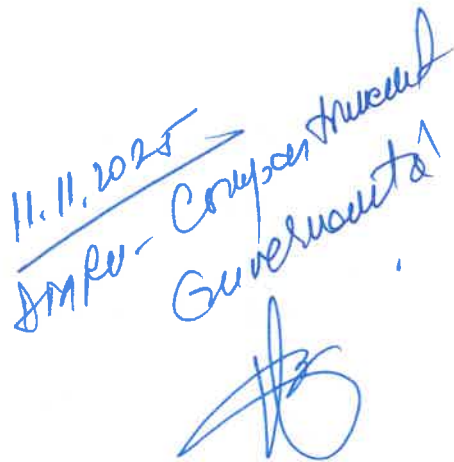 11.11.2025
DMRU - Compartiment
Guvernanță!